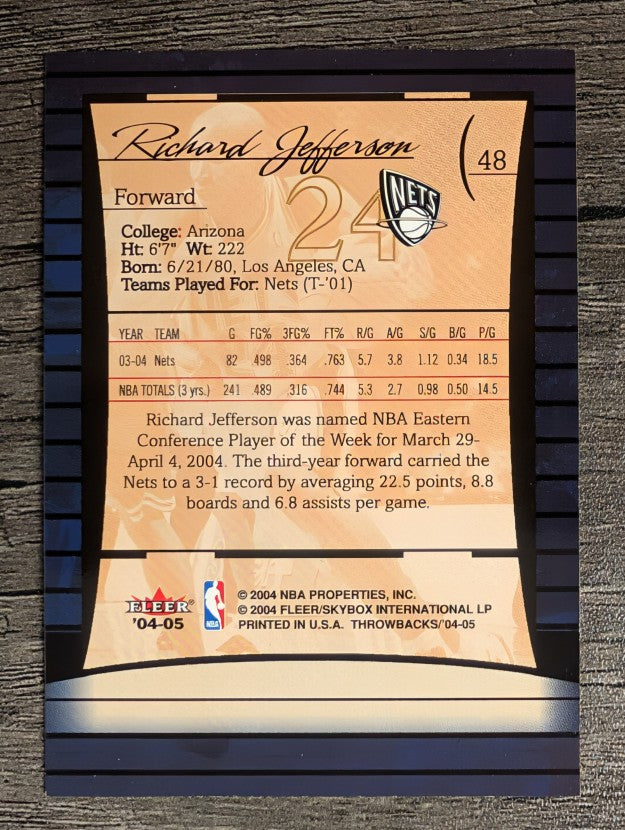 Richard Jefferson
48
Forward
24
NETS
College: Arizona
Ht: 6'7" Wt: 222
Born: 6/21/80, Los Angeles, CA
Teams Played For: Nets (T-'01)
YEAR TEAM G FG% 3FG% FT% R/G A/G S/G B/G P/G
03-04 Nets 82 .498 .364 .763 5.7 3.8 1.12 0.34 18.5
NBA TOTALS (3 yrs.) 241 .489 .316 .744 5.3 2.7 0.98 0.50 14.5
Richard Jefferson was named NBA Eastern
Conference Player of the Week for March 29-
April 4, 2004. The third-year forward carried the
Nets to a 3-1 record by averaging 22.5 points, 8.8
boards and 6.8 assists per game.
FLEER
'04-05
NBA
© 2004 NBA PROPERTIES, INC.
© 2004 FLEER/SKYBOX INTERNATIONAL LP
PRINTED IN U.S.A. THROWBACKS/'04-05